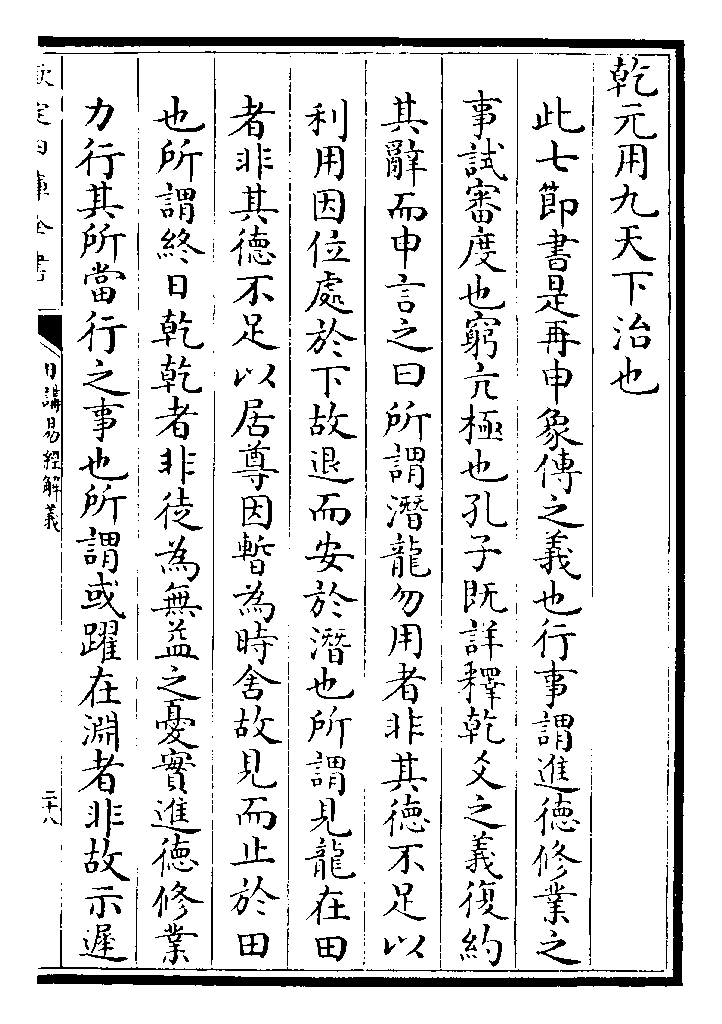 乾元用九天下治也
此七節書是再申象傳之義也行事謂進德修業之
事試審度也窮亢極也孔子既詳釋乾爻之義復約
其辭而申言之曰所謂潛龍勿用者非其德不足以
利用因位處於下故退而安於潛也所謂見龍在田
者非其德不足以居尊因暫為時舍故見而止於田
也所謂終日乾乾者非徒為無益之憂實進德修業
力行其所當行之事也所謂或躍在淵者非故示遲
欽定四庫全書
日講易經解義
二十八